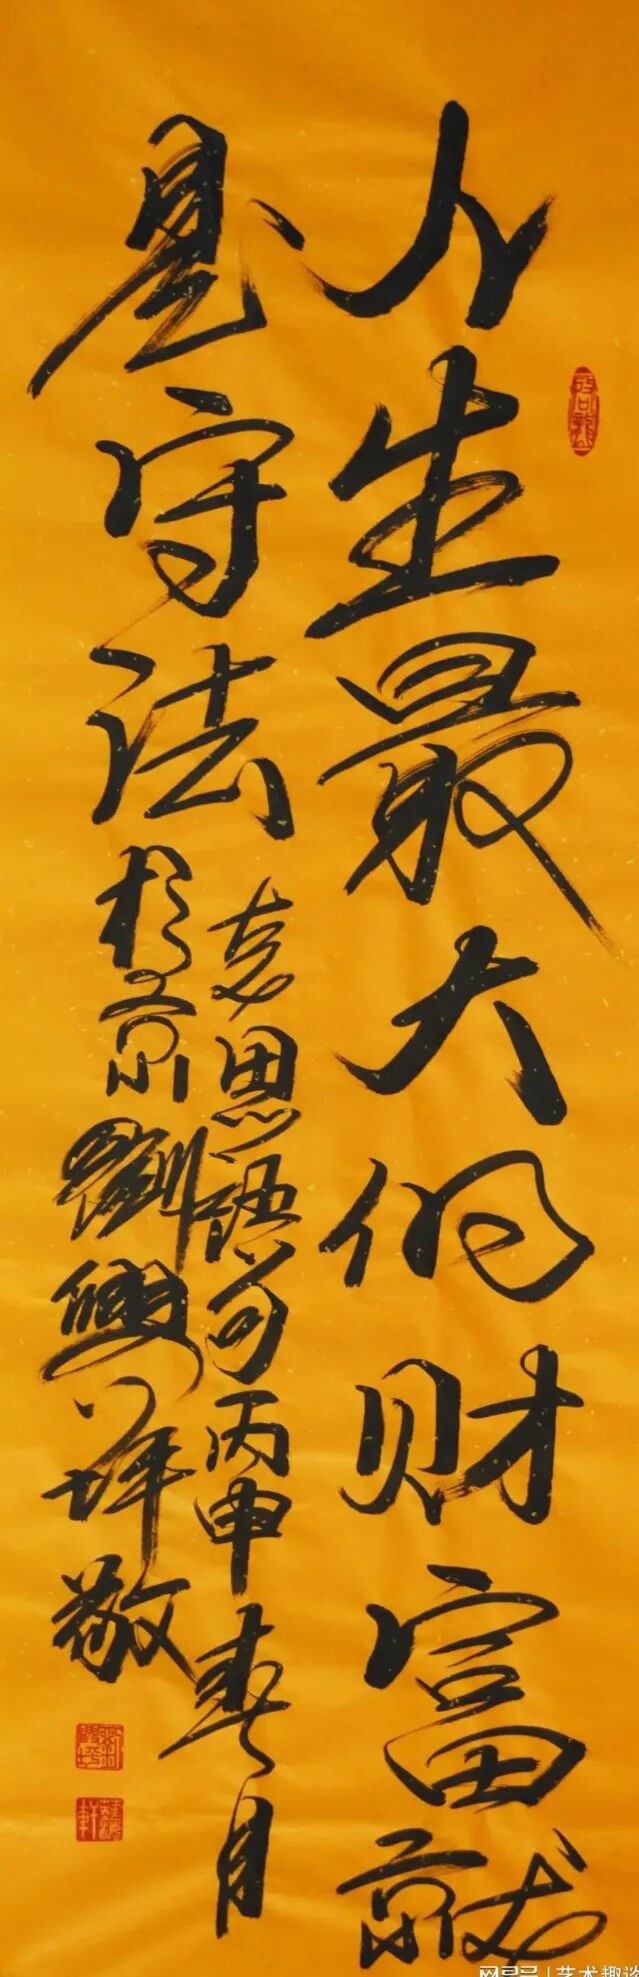 人生最大的财富就
是守法
老思语句丙申春月
于京刘兴祥敬
网易号 | 艺术趣谈